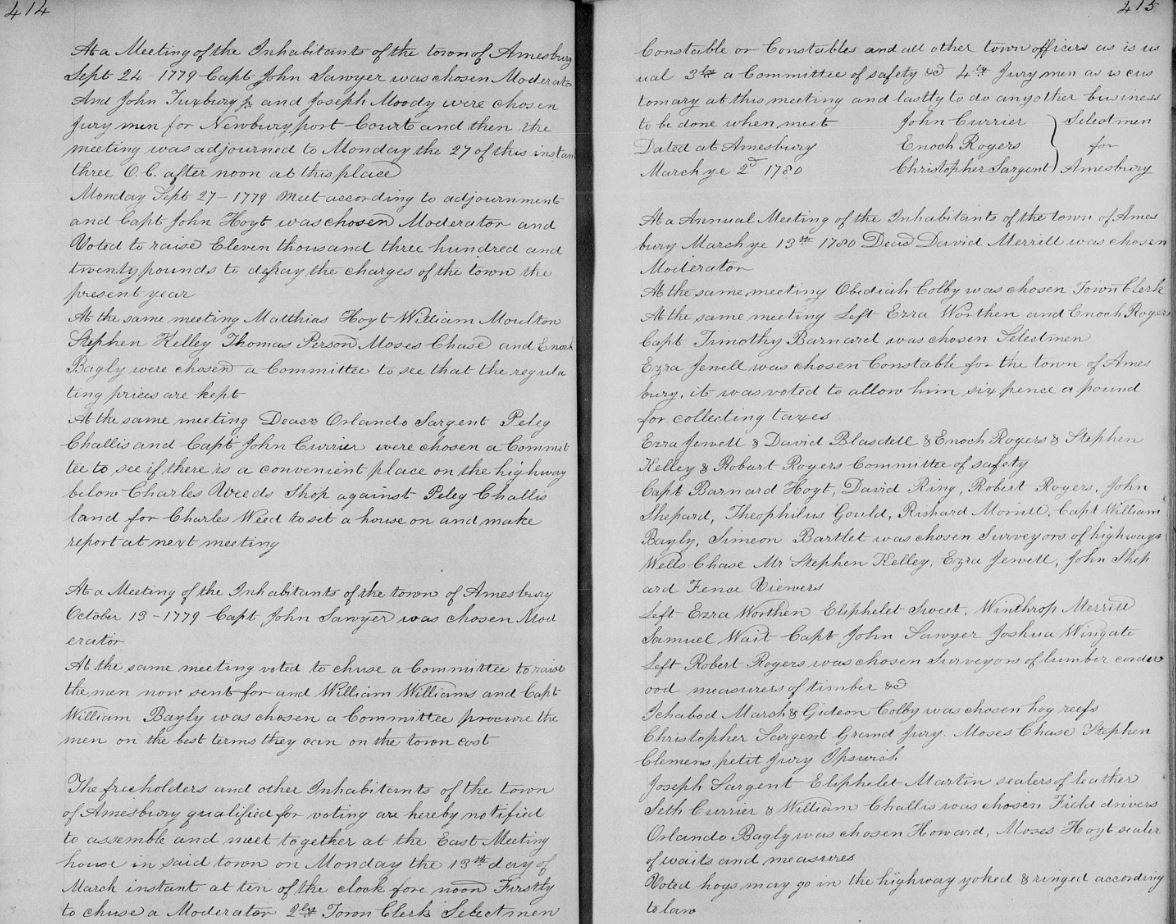 414
At a Meeting of the Inhabitants of the town of Amesbury
Sept 24 - 1779 Capt John Sawyer was chosen Moderator
And John Tuxbury Jr and Joseph Moody were chosen
Jury men for Newburyport Court and then the
meeting was adjourned to Monday the 27 of this instan
three O.C. after noon at this place
Monday Sept 27 - 1779 Meet according to adjournment
and Capt John Hoyt was chosen Moderator and
Voted to raise Eleven thousand three hundred and
twenty pounds to defray the charges of the town the
present year
At the same meeting Matthias Hoyt William Moulton
Stephen Kelley Thomas Person Moses Chase and Enoch
Bagly were chosen a Committee to see that the regula
ting prices are kept
At the same meeting Deacn Orlando Sargent Peleg
Challis and Capt John Currier were chosen a Commit
tee to see if there is a convenient place on the highway
below Charles Weeds Shop against Peleg Challis
land for Charles Weed to set a house on and make
report at next meeting
At a Meeting of the Inhabitants of the town of Amesbury
October 13 - 1779 Capt John Sawyer was chosen Mod
erator
At the same meeting voted to chuse a Committee to raise
the men now sent for and William Williams and Capt
William Bagly was chosen a Committee procure the
men on the best terms they can on the town cost
The freeholders and other Inhabitants of the town
of Amesbury qualified for voting are hereby notified
to assemble and meet together at the East Meeting
house in said town on Monday the 13th day of
March instant at ten of the clock fore noon Firstly
to chuse a Moderator 2ly Town Clerk Selectmen
415
Constable or Constables and all other town officers as is us
ual 3ly a Committee of safety &c 4ly Jury men as is cus
tomary at this meeting and lastly to do any other business
to be done when meet John Currier } Selestmen
Dated at Amesbury Enoch Rogers } for
March ye 2d 1780 Christopher Sargent } Amesbury
At a Annual Meeting of the Inhabitants of the town of Ames
bury March ye 13th 1780 Deacn David Merrill was chosen
Moderator
At the same meeting Obediah Colby was chosen Town Clerk
At the same meeting Left Ezra Worthen and Enoch Rogers
Capt Timothy Barnard was chosen Selestmen
Ezra Jewell was chosen Constable for the town of Ames
bury, it was voted to allow him six pence a pound
for collecting taxes
Ezra Jewell & David Blasdell & Enoch Rogers & Stephen
Kelley & Robart Rogers Committee of safety
Capt Barnard Hoyt, David Ring, Robert Rogers, John
Shepard, Theophilus Gould, Richard Morrill, Capt William
Bagly, Simeon Bartlet was chosen Surveyors of highways
Wells Chase Mr Stephen Kelley, Ezra Jewell, John Shep
ard Fence Viewers
Left Ezra Worthen Eliphelet Swet, Winthrop Merrill
Samuel Wait Capt John Sawyer Joshua Wingate
Left Robert Rogers was chosen Surveyors of lumber cordw
ood measurers of timber &c
Ichabod Marsh & Gideon Colby was chosen hog reefs
Christopher Sargent Grand Jury. Moses Chase Stephen
Clemens petit Jury Ipswich
Joseph Sargent Eliphelet Martin sealers of leather
Seth Currier & William Challis was chosen Field drivers
Orlando Bagly was chosen Howard, Moses Hoyt sealer
of waits and measures
Voted hogs may go in the highway yoked & ringed according
to law